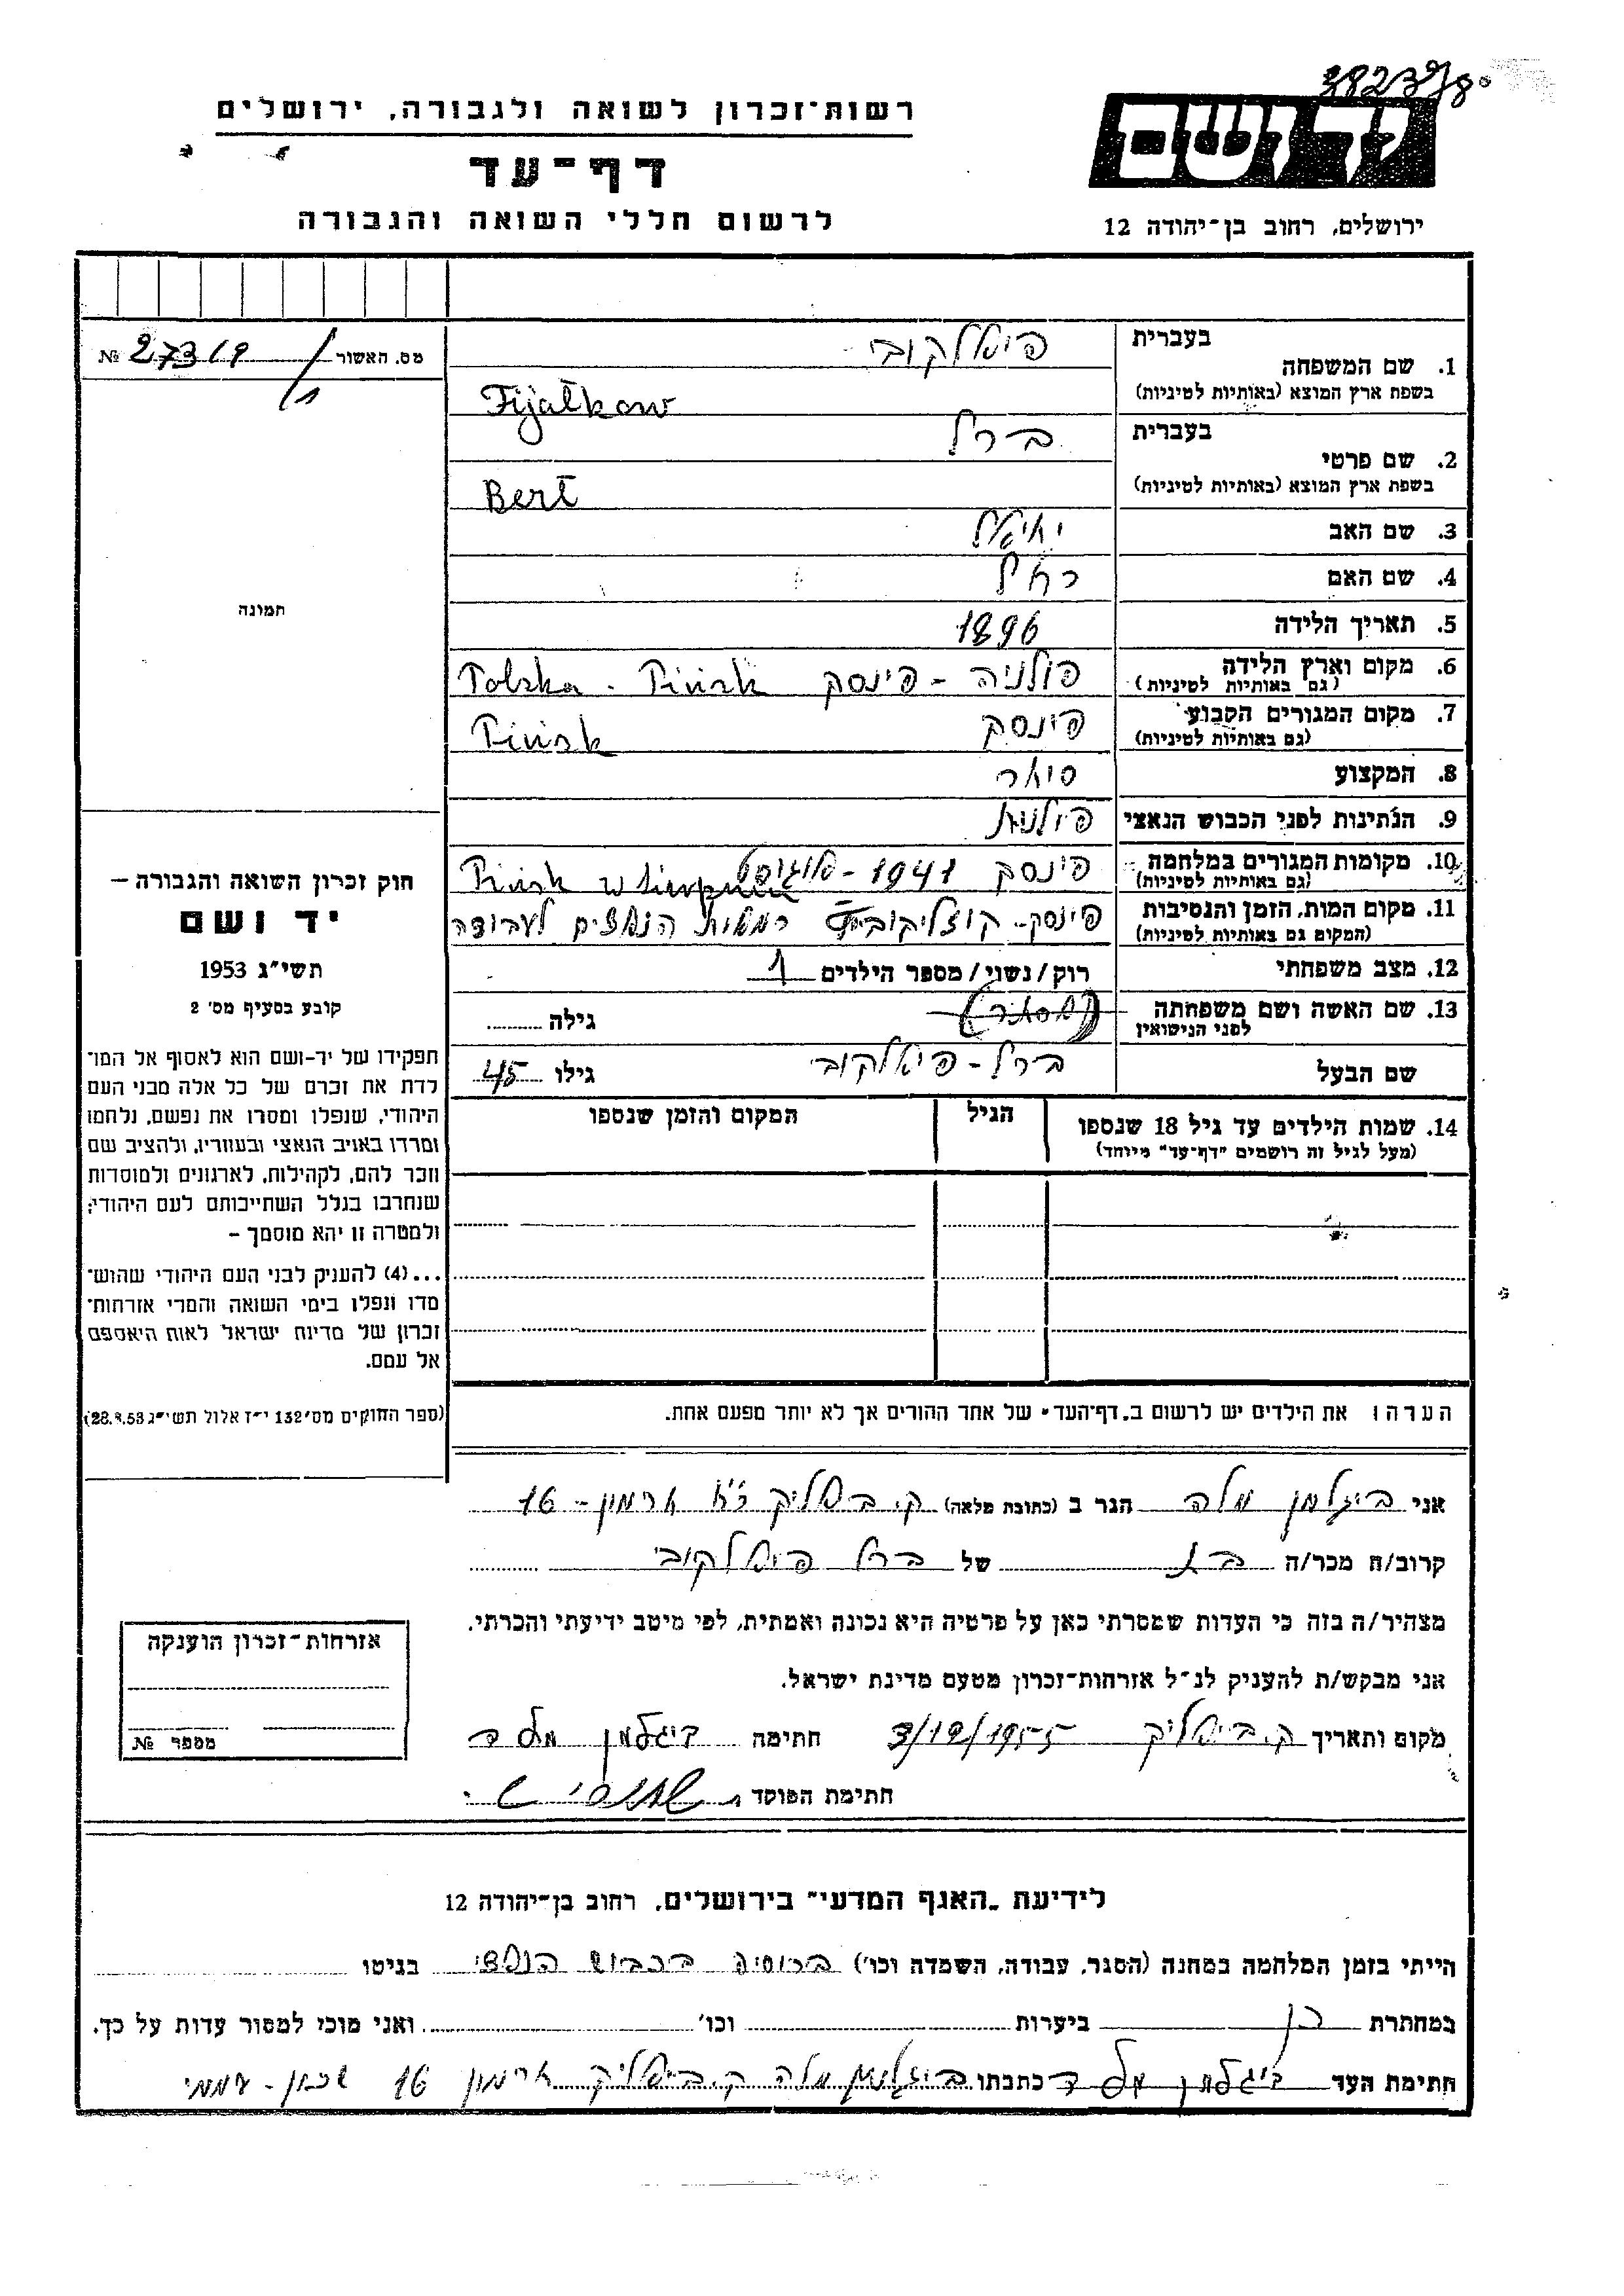 רשות־זכרון לשואה ולגבורה, ירושלים
דף־עד
לרשום חללי השואה והגבורה
יד ושם
ירושלים, רחוב בן־יהודה 12
מס. האשור 27319 №
1. שם המשפחה
בעברית פיאלקוב
בשפת ארץ המוצא (באותיות לטיניות) Fijałkow
2. שם פרטי
בעברית ברל
בשפת ארץ המוצא (באותיות לטיניות) Berł
3. שם האב יחיאל
4. שם האם רחל
5. תאריך הלידה 1896
6. מקום וארץ הלידה פולניה - פינסק Polska - Pińsk
(גם באותיות לטיניות)
7. מקום המגורים הקבוע פינסק Pińsk
(גם באותיות לטיניות)
8. המקצוע סוחר
9. הנתינות לפני הכבוש הנאצי פולנית
10. מקומות המגורים במלחמה פינסק 1941 - אוגוסט Pińsk w sierpniu
(גם באותיות לטיניות)
11. מקום המות, הזמן והנסיבות פינסק - הנאצים לעבודה
(המקום גם באותיות לטיניות)
12. מצב משפחתי רוק/נשוי/מספר הילדים 1
13. שם האשה ושם משפחתה
לפני הנישואין
גילה
שם הבעל ברל - פיאלקוב גילו 45
14. שמות הילדים עד גיל 18 שנספו
(מעל לגיל זה רושמים "דף־עד" מיוחד)
הגיל
המקום והזמן שנספו
הערה: את הילדים יש לרשום ב„דף־העד" של אחד ההורים אך לא יותר מפעם אחת.
תמונה
חוק זכרון השואה והגבורה –
יד ושם
תשי״ג 1953
קובע בסעיף מס׳ 2
תפקידו של יד-ושם הוא לאסוף אל המו־
לדת את זכרם של כל אלה מבני העם
היהודי, שנפלו ומסרו את נפשם, נלחמו
ומרדו באויב הנאצי ובעוזריו, ולהציב שם
וזכר להם, לקהילות, לארגונים ולמוסדות
שנחרבו בגלל השתייכותם לעם היהודי;
ולמטרה זו יהא מוסמך –
...(4) להעניק לבני העם היהודי שהוש־
מדו ונפלו בימי השואה והמרי אזרחות־
זכרון של מדינת ישראל לאות היאספם
אל עמם.
(ספר החוקים מס׳ 132 י״ז אלול תשי״ג 28.8.53)
אני ביגלמן מלה הגר ב (כתובת מלאה) ק. ביאליק ארמון - 16
קרוב/ה מכר/ה בת של ברל פיאלקוב
מצהיר/ה בזה כי העדות שמסרתי כאן על פרטיה היא נכונה ואמתית, לפי מיטב ידיעתי והכרתי.
אני מבקש/ת להעניק לנ״ל אזרחות־זכרון מטעם מדינת ישראל.
מקום ותאריך ק. ביאליק 3/12/1955 חתימה ביגלמן מלה
חתימת הפוקד
אזרחות־זכרון הוענקה
מספר №
לידיעת „האגף המדעי" בירושלים, רחוב בן־יהודה 12
הייתי בזמן המלחמה במחנה (הסגר, עבודה, השמדה וכו׳) ברוסיה בכבוש הנאצי בגיטו
במחתרת כן ביערות וכו׳ ואני מוכן למסור עדות על כך.
חתימת העד ביגלמן מלה כתבתו ביגלמן מלה ק. ביאליק ארמון 16 שכון - עממי